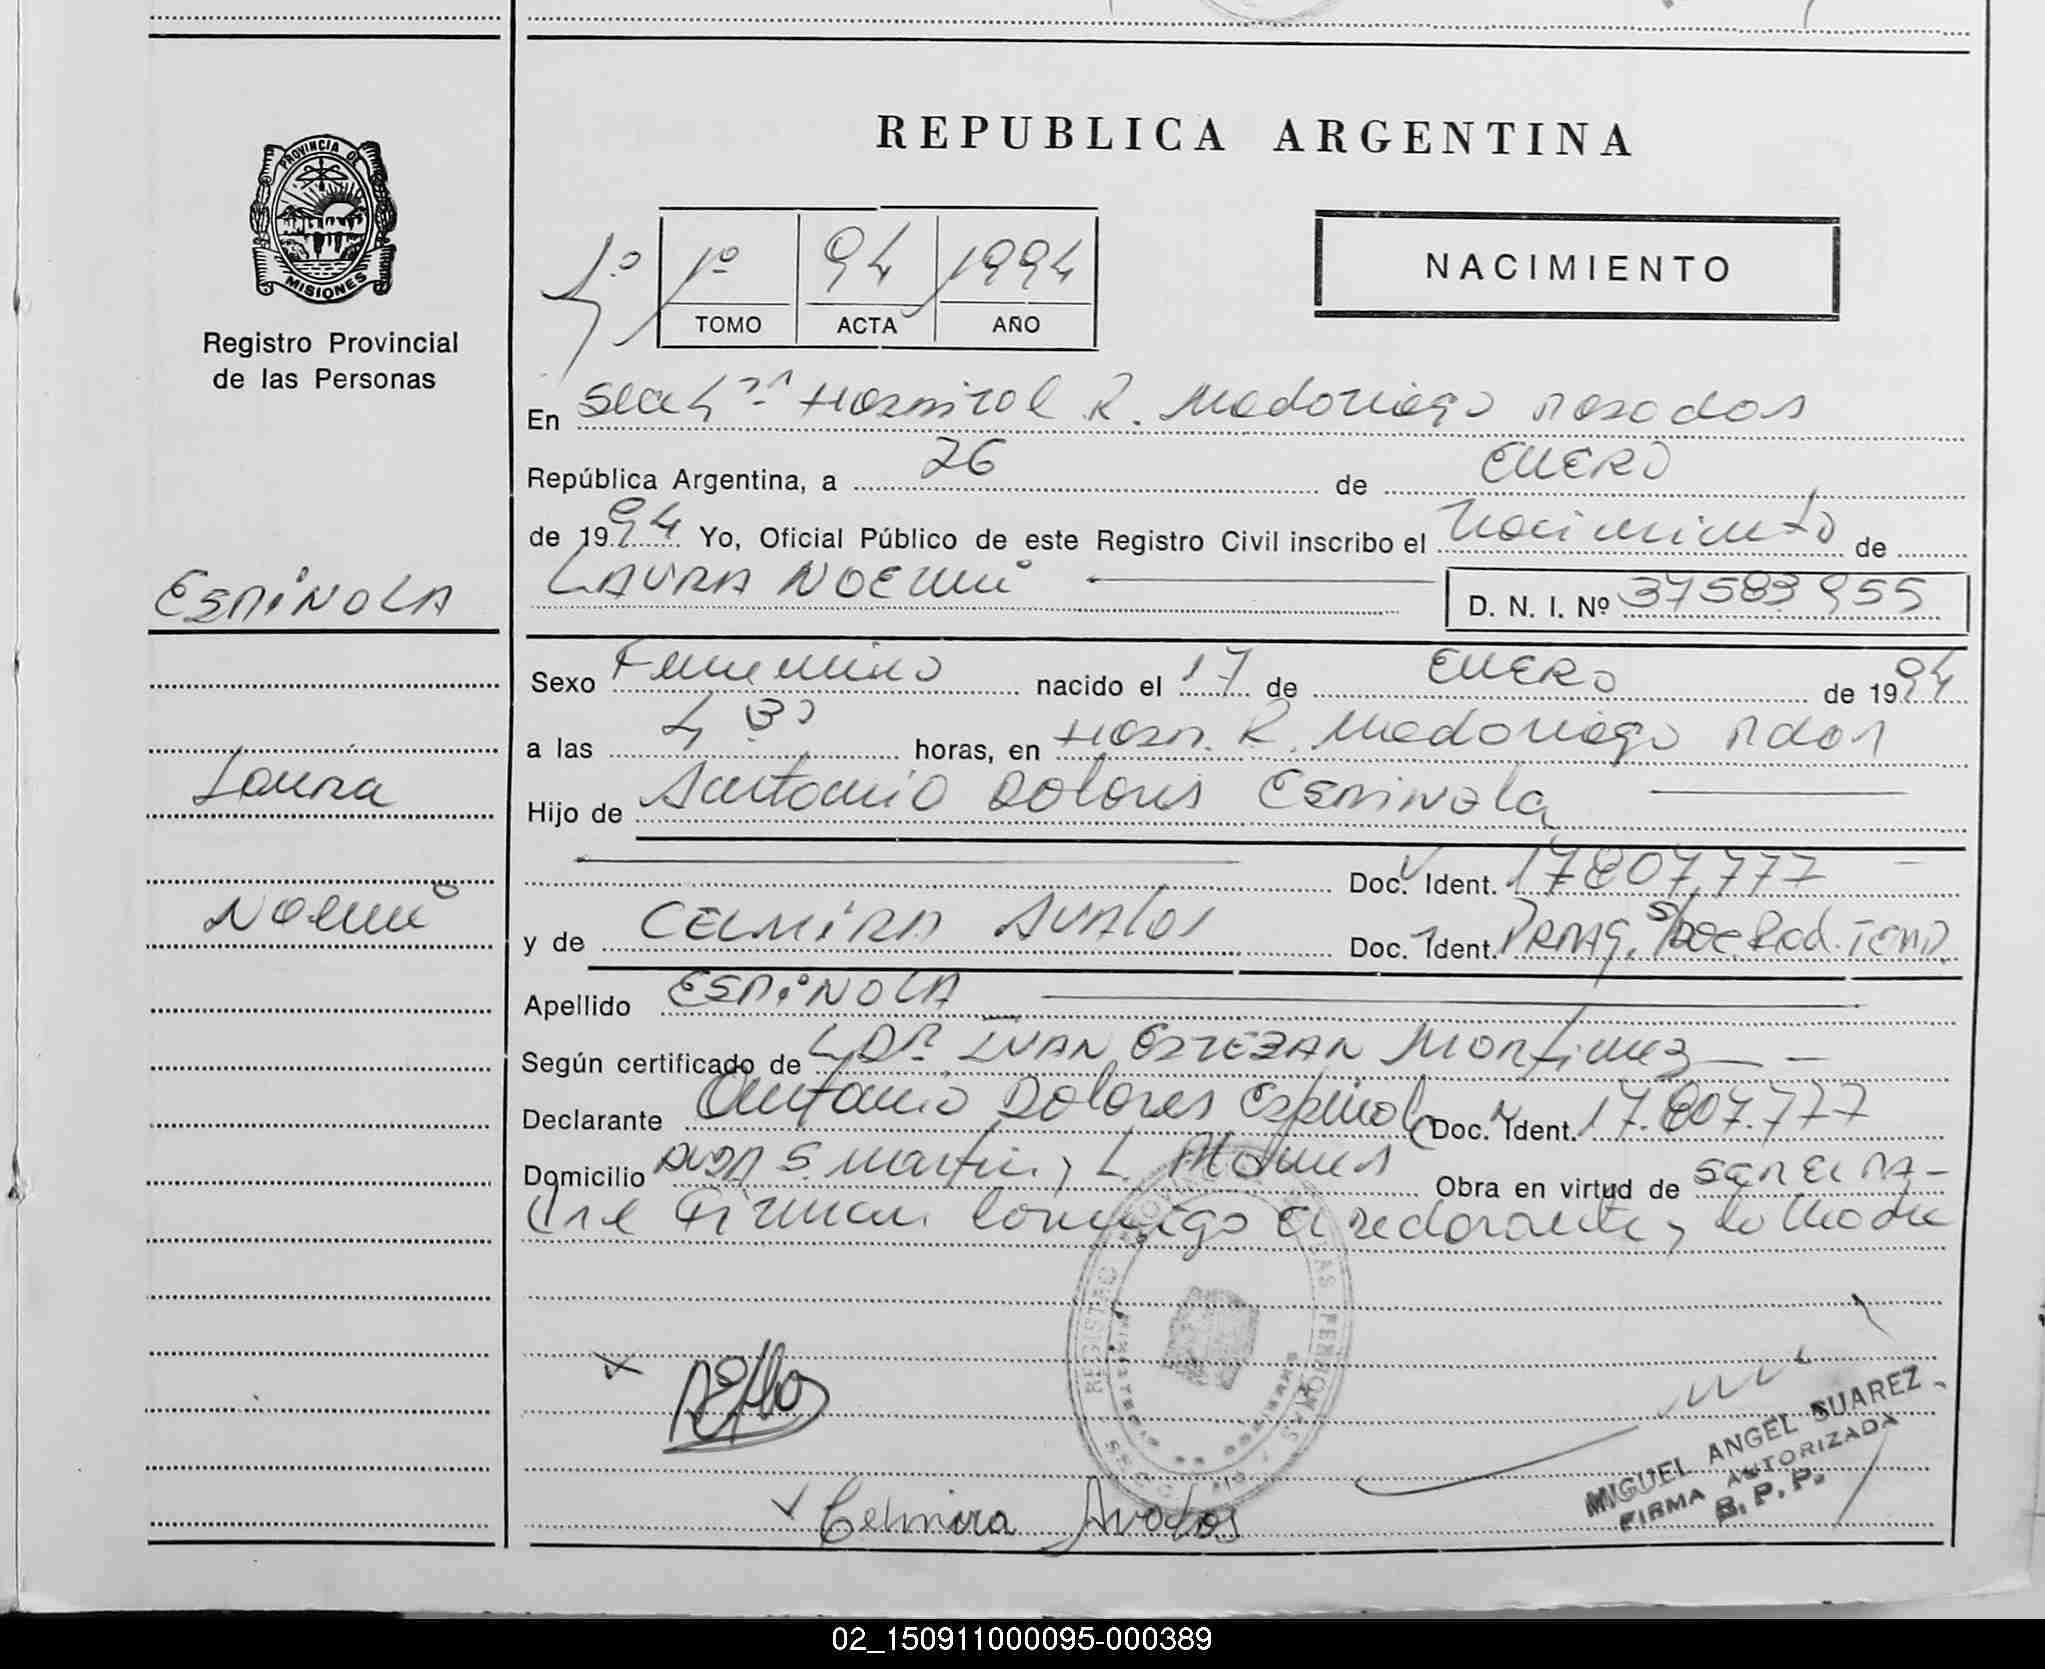 REPUBLICA ARGENTINA
PROVINCIA DE
MISIONES
Registro Provincial
de las Personas
1º 1º 94 1994
TOMO ACTA AÑO
NACIMIENTO
En Secc 1ª Hospital R. Madariaga Posadas
República Argentina, a 26 de ENERO
de 1994 Yo, Oficial Público de este Registro Civil inscribo el Nacimiento de
ESPINOLA
LAURA NOEMI D. N. I. Nº 37583955
Sexo Femenino nacido el 17 de ENERO de 1994
a las 4 30 horas, en Hosp. R. Madariaga Pdas
Laura
Hijo de Antonio Dolores Espinola
Doc. Ident. 17807.777
Noemi
y de CELMIRA AVALOS Doc. Ident.
Apellido ESPINOLA
Según certificado de DR. IVAN ESTEBAN Martinez
Declarante Antonio Dolores Espinola Doc. Ident. 17.807.777
Domicilio S. Martin y L. Obra en virtud de SER EL PA-
dre Firman conmigo el declarante y la Madre
Celmira Avalos
MIGUEL ANGEL SUAREZ
FIRMA AUTORIZADA
R. P. P.
02_150911000095-000389